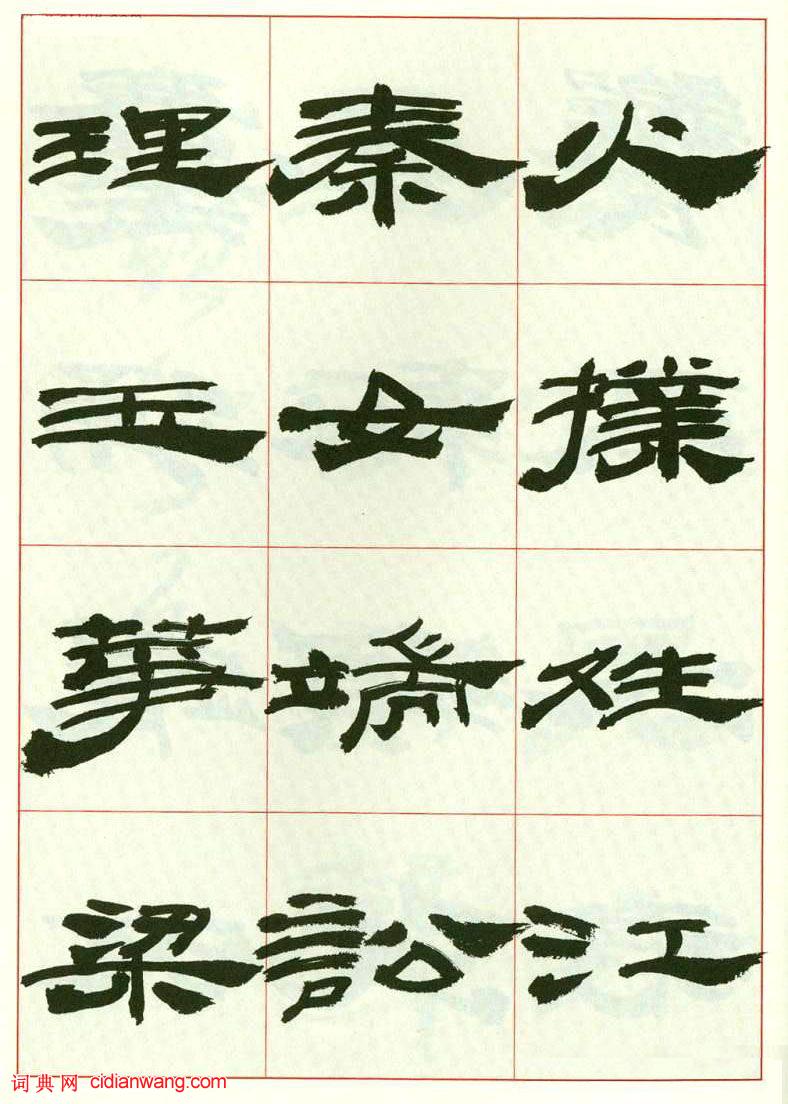 火撲姓江
秦女端訟
理玉華梁
词典网 cidianwang.com